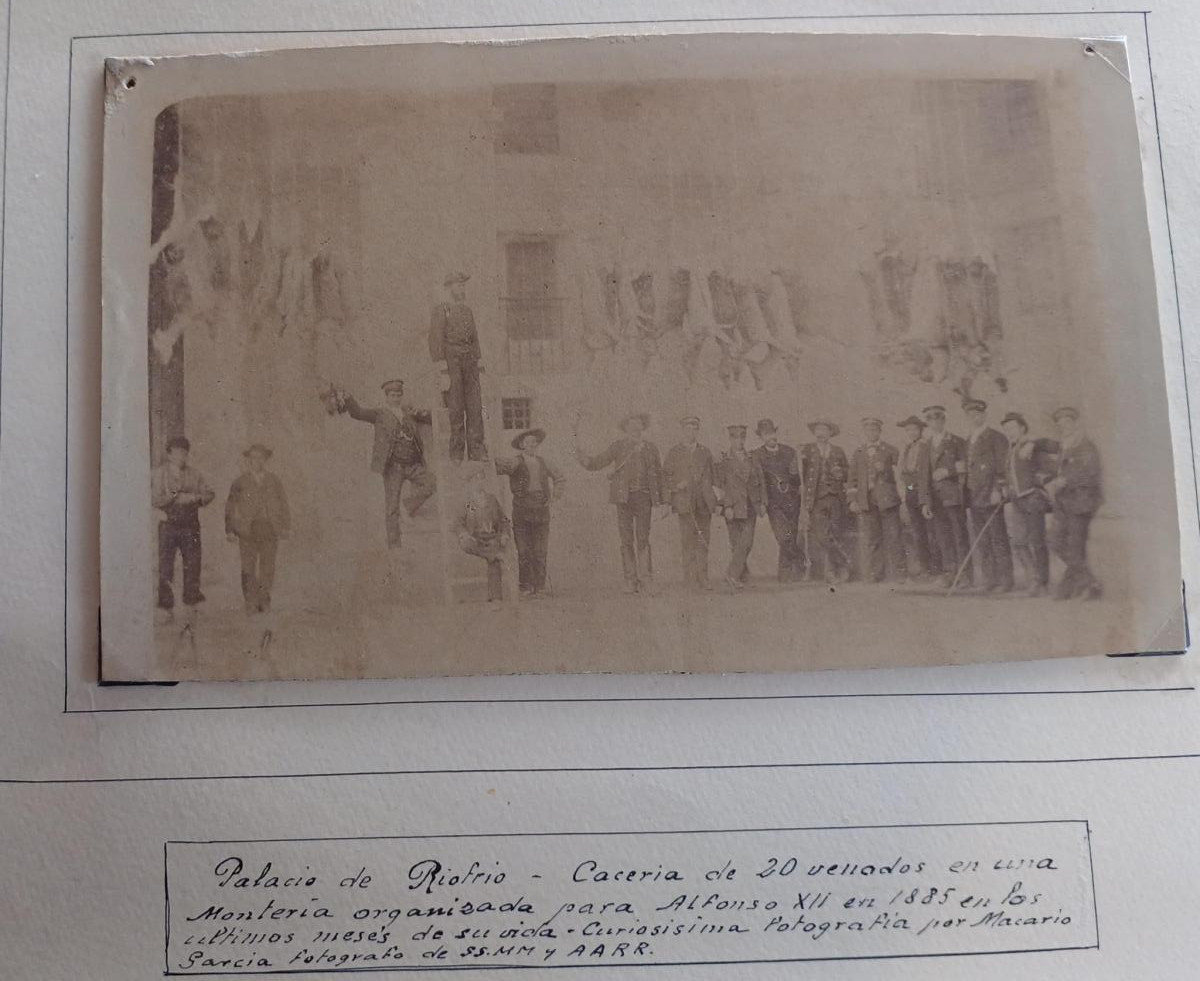 Palacio de Riofrio - Caceria de 20 venados en una
Montería organizada para Alfonso XII en 1885 en los
ultimos mesés de su vida - Curiosisima fotografía por Macario
Garcia fotografo de SS.MM y AARR.